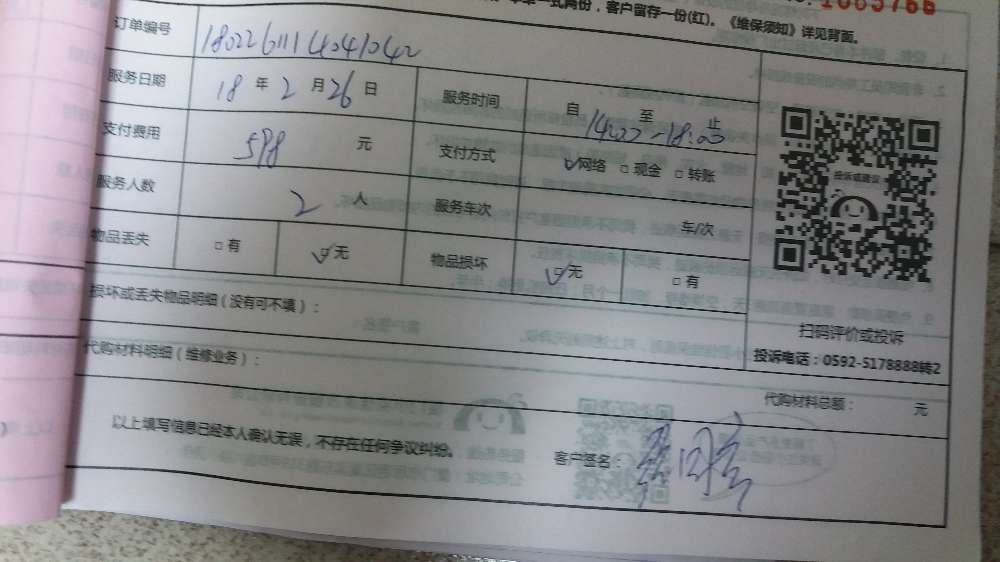 一式两份，客户留存一份(红)。《维保须知》详见背面。
订单编号 1802261114041042
服务日期 18 年 2 月 26 日 服务时间 自 至 止 14:00-18:00
支付费用 598 元 支付方式 ☑网络 □现金 □转账
服务人数 2 人 服务车次 车/次
物品丢失 □有 ☑无 物品损坏 ☑无 □有
损坏或丢失物品明细（没有可不填）：
扫码评价或投诉
投诉电话：0592-5178888转2
代购材料明细（维修业务）：
代购材料总额： 元
以上填写信息已经本人确认无误，不存在任何争议纠纷。
客户签名：